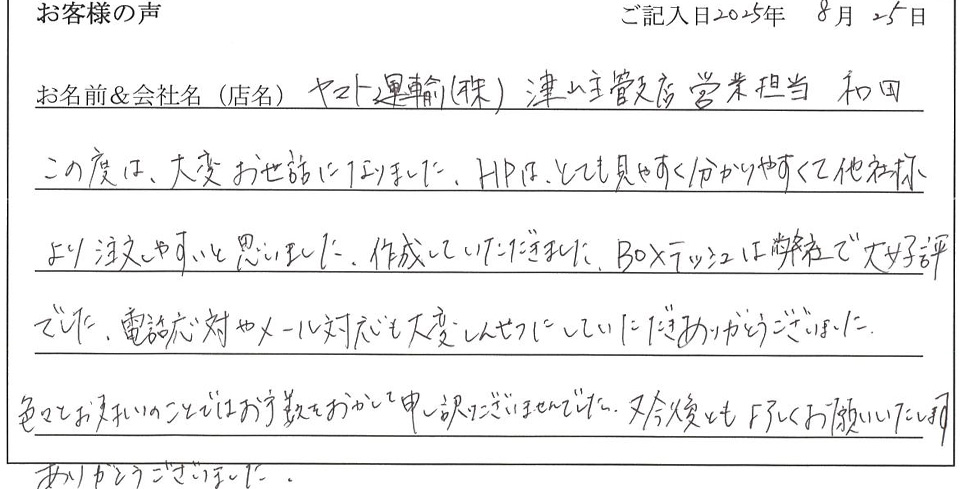 お客様の声 ご記入日2025年 8月 25日
お名前&会社名（店名） ヤマト運輸(株) 津山主管支店 営業担当 和田
この度は、大変お世話になりました。HPは、とても見やすく分かりやすくて他社様
より注文しやすいと思いました。作成していただきました、BOXティッシュは弊社で大好評
でした。電話応対やメール対応も大変しんせつにしていただきありがとうございました。
色々とお支払いのことではお手数をおかして申し訳ございませんでした。又今後とも よろしくお願いいたします
ありがとうございました。